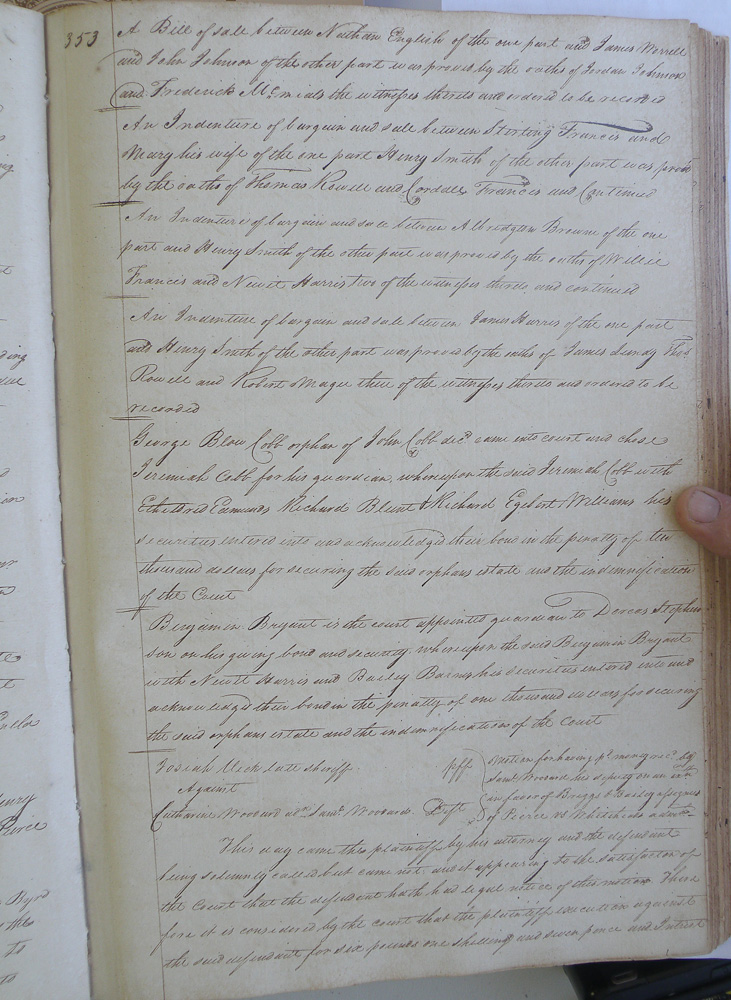 353
A Bill of sale between Nathan English of the one part and James Worrell
and John Johnson of the other part was proved by the oaths of Jordan Johnson
and Frederick McMeals the witnesses thereto and ordered to be recorded
An Indenture of bargain and sale between Sterling Francis and
Mary his wife of the one part Henry Smith of the other part was proved
by the oaths of Thomas Rowell and Cordde Francis and Continued
An Indenture of bargain and sale between Albridgton Browne of the one
part and Henry Smith of the other part was proved by the oaths of Willie
Francis and Newit Harris two of the witnesses thereto, and continued
An Indenture of bargain and sale between James Harris of the one part
and Henry Smith of the other part was proved by the oaths of James Lundy Thos
Rowell and Robert Magee three of the witnesses thereto and ordered to be
recorded
George Blow Cobb orphan of John Cobb decd came into court and chose
Jeremiah Cobb for his guardian, whereupon the said Jeremiah Cobb with
Etheldred Edmunds Richard Blunt & Richard Egbert Williams his
securities entered into and acknowledged their bond in the penalty of ten
thousand dollars for securing the said orphans estate and the indemnification
of the Court
Benjamin Bryant is the court appointed guardian to Dorcas Stephen
son on his giving bond and security whereupon the said Benjamin Bryant
with Newit Harris and Bailey Barns his securities entered into and
acknowledged their bond in the penalty of one thousand dollars for securing
the said orphans estate and the indemnification of the Court
Josiah Vick late sheriff plff
Against
Catharine Woodard admx Saml Woodard Deft
Motion for having pd money recd by
Saml Woodard his deputy on an exn
in favor of Briggs & Bailey assignees
of Pierce vs Whitehead
This day came the plaintiff by his attorney and the defendant
being solemnly called but came not and it appearing to the satisfaction of
the Court that the defendant hath had legal notice of this motion There
fore it is considered by the court that the plaintiff execution against
the said defendant for six pounds one shilling and seven pence and Interest